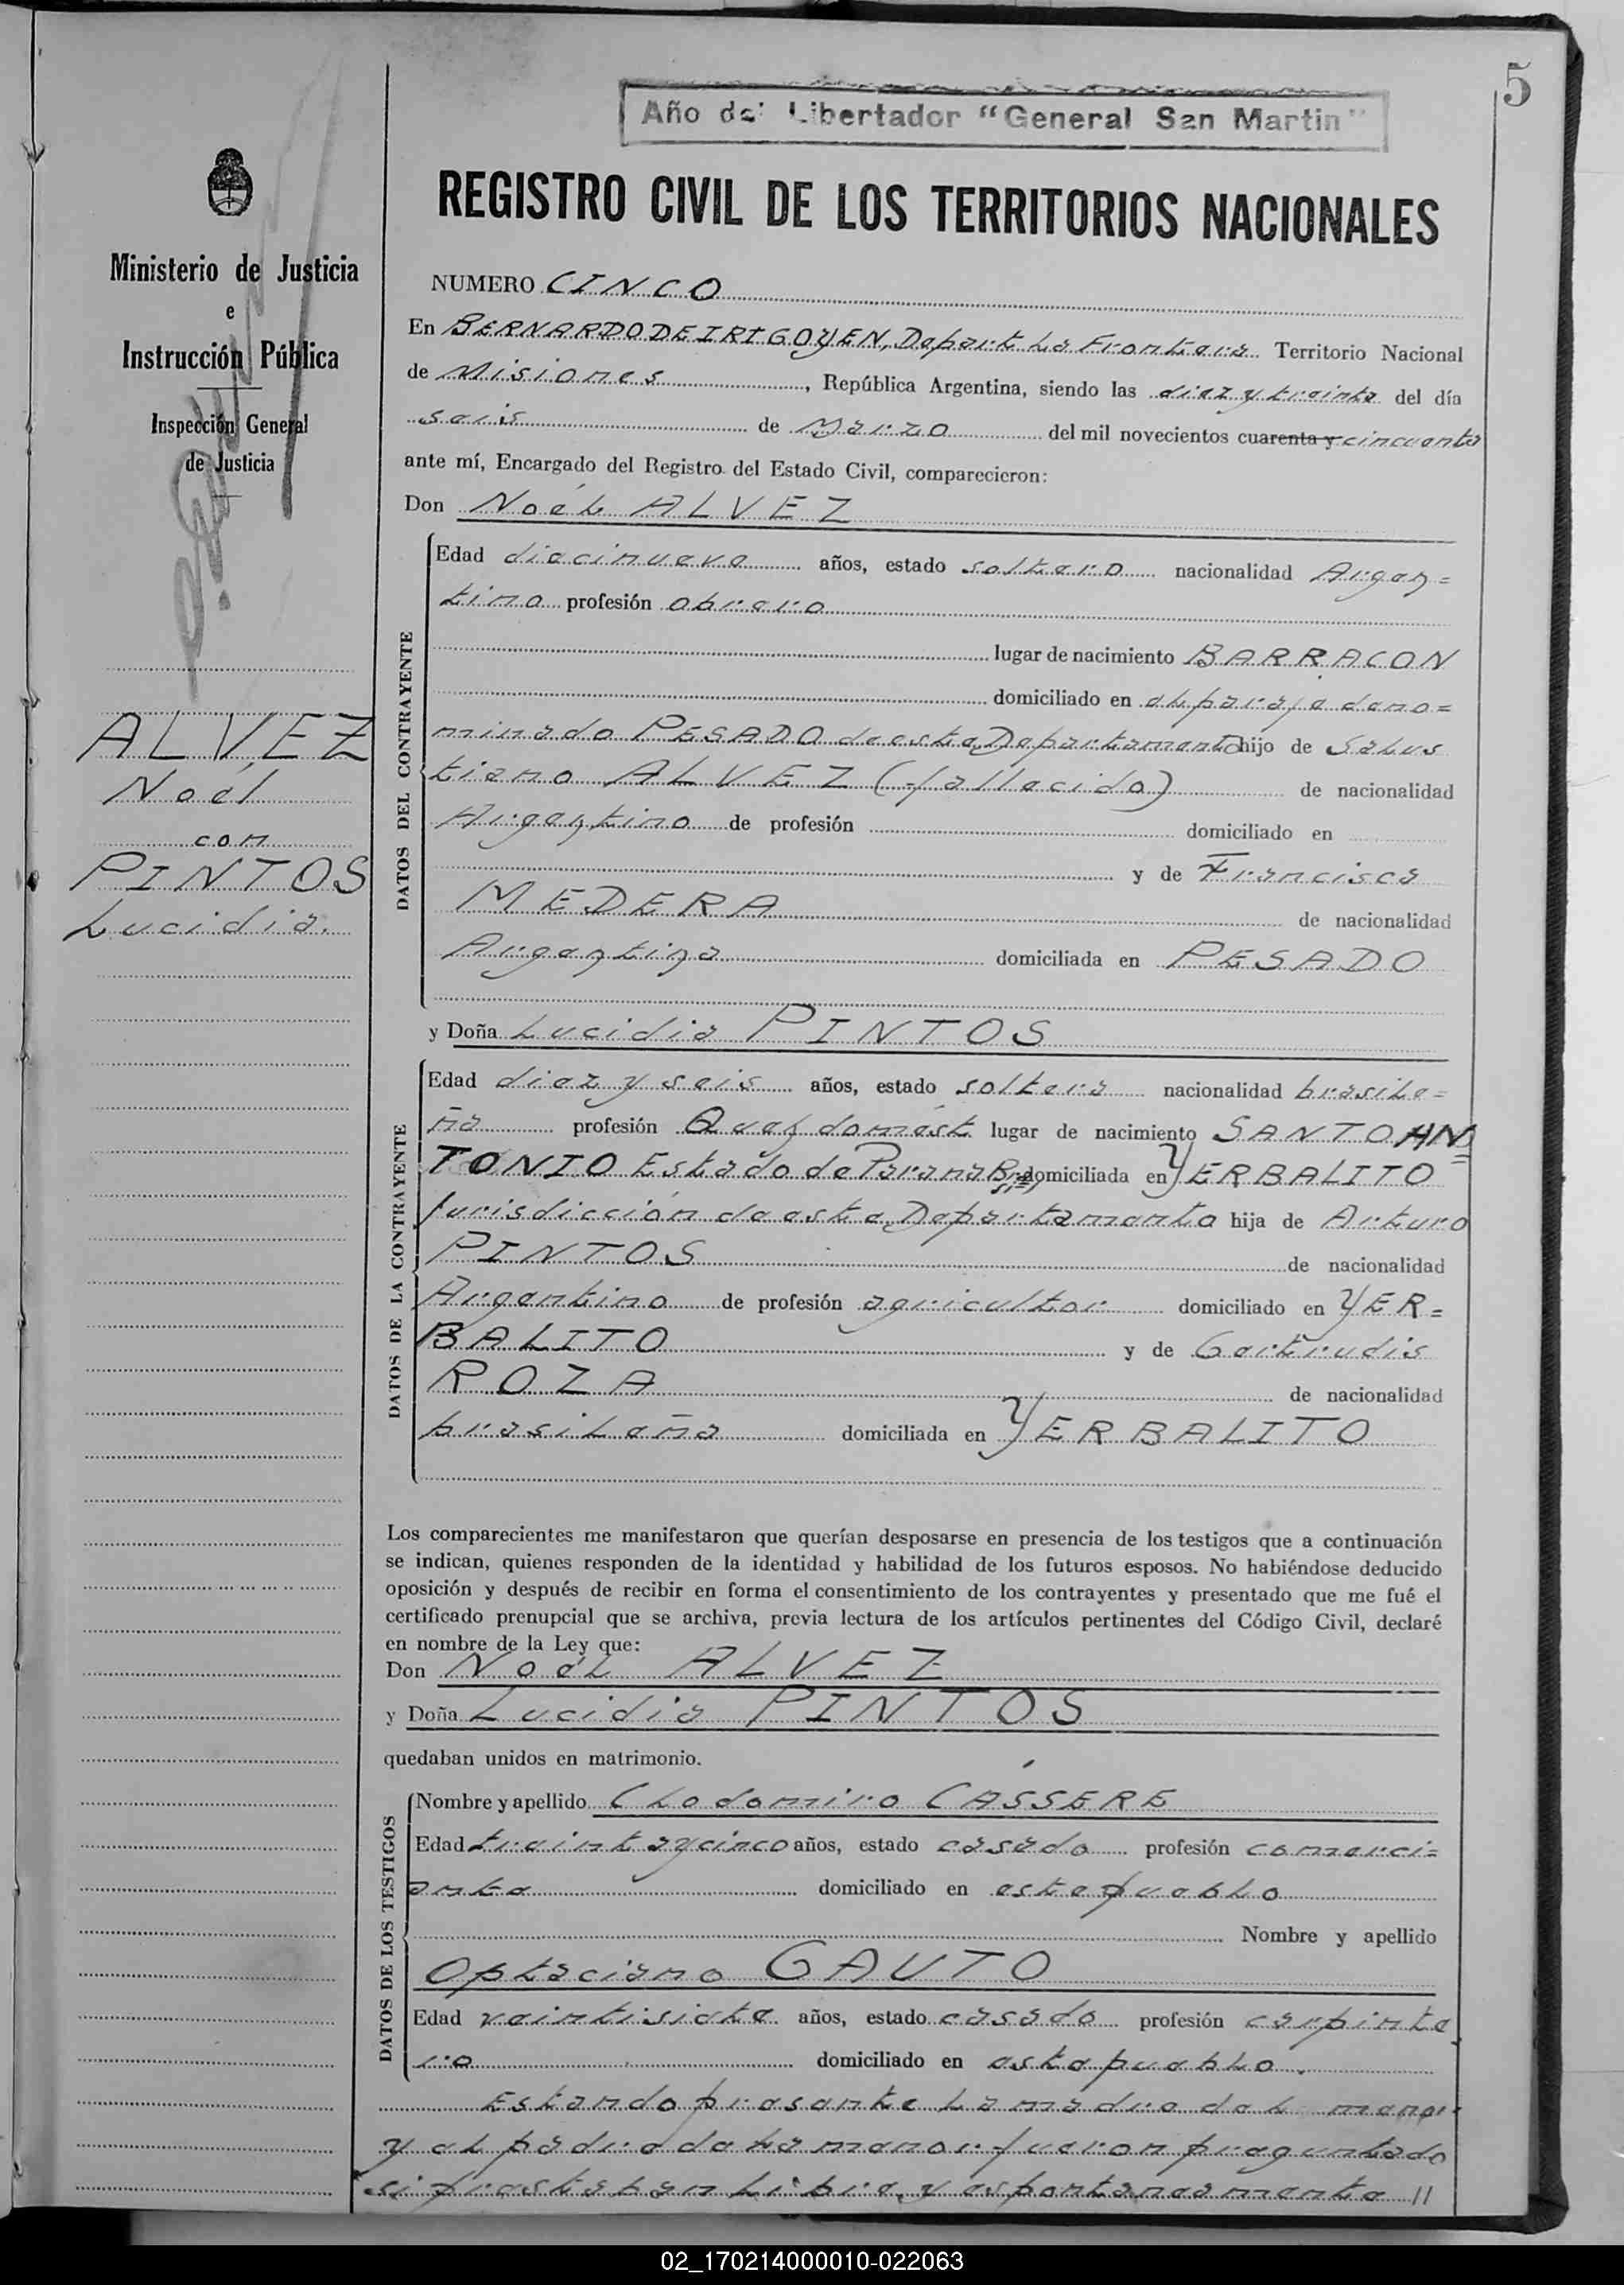 5
Año del Libertador "General San Martin"
REGISTRO CIVIL DE LOS TERRITORIOS NACIONALES
Ministerio de Justicia
e
Instrucción Pública
Inspección General
de Justicia
ALVEZ
Noél
con
PINTOS
Lucidia.
NUMERO CINCO
En BERNARDO DE IRIGOYEN, Depart. La Frontera Territorio Nacional
de Misiones, República Argentina, siendo las diez y treinta del día
seis de Marzo del mil novecientos cuarenta y cincuenta
ante mí, Encargado del Registro del Estado Civil, comparecieron:
Don Noél ALVEZ
DATOS DEL CONTRAYENTE
Edad diecinueve años, estado soltero nacionalidad Argen=
tino profesión obrero
lugar de nacimiento BARRACON
domiciliado en el paraje deno=
minado PESADO de este Departamento hijo de Salus
tiano ALVEZ (fallecido) de nacionalidad
Argentino de profesión domiciliado en
y de Francisca
MEDERA de nacionalidad
Argentina domiciliada en PESADO
y Doña Lucidia PINTOS
DATOS DE LA CONTRAYENTE
Edad diez y seis años, estado soltera nacionalidad brasile=
ña profesión Queh. domést. lugar de nacimiento SANTO AN=
TONIO Estado de Parana Bras, domiciliada en YERBALITO
jurisdicción de este Departamento hija de Arturo
PINTOS de nacionalidad
Argentino de profesión agricultor domiciliado en YER=
BALITO y de Gertrudis
ROZA de nacionalidad
brasileña domiciliada en YERBALITO
Los comparecientes me manifestaron que querían desposarse en presencia de los testigos que a continuación
se indican, quienes responden de la identidad y habilidad de los futuros esposos. No habiéndose deducido
oposición y después de recibir en forma el consentimiento de los contrayentes y presentado que me fué el
certificado prenupcial que se archiva, previa lectura de los artículos pertinentes del Código Civil, declaré
en nombre de la Ley que:
Don Noél ALVEZ
y Doña Lucidia PINTOS
quedaban unidos en matrimonio.
DATOS DE LOS TESTIGOS
Nombre y apellido Clodomiro CASSERE
Edad treinta y cinco años, estado casado profesión comerci=
ante domiciliado en este pueblo
Nombre y apellido
Optaciano GAUTO
Edad veintisiete años, estado casado profesión carpinte
ro domiciliado en este pueblo.
Estando presente la madre del menor
y el padre de la menor fueron preguntado
si prestaban libre y espontaneamente //
02_170214000010-022063